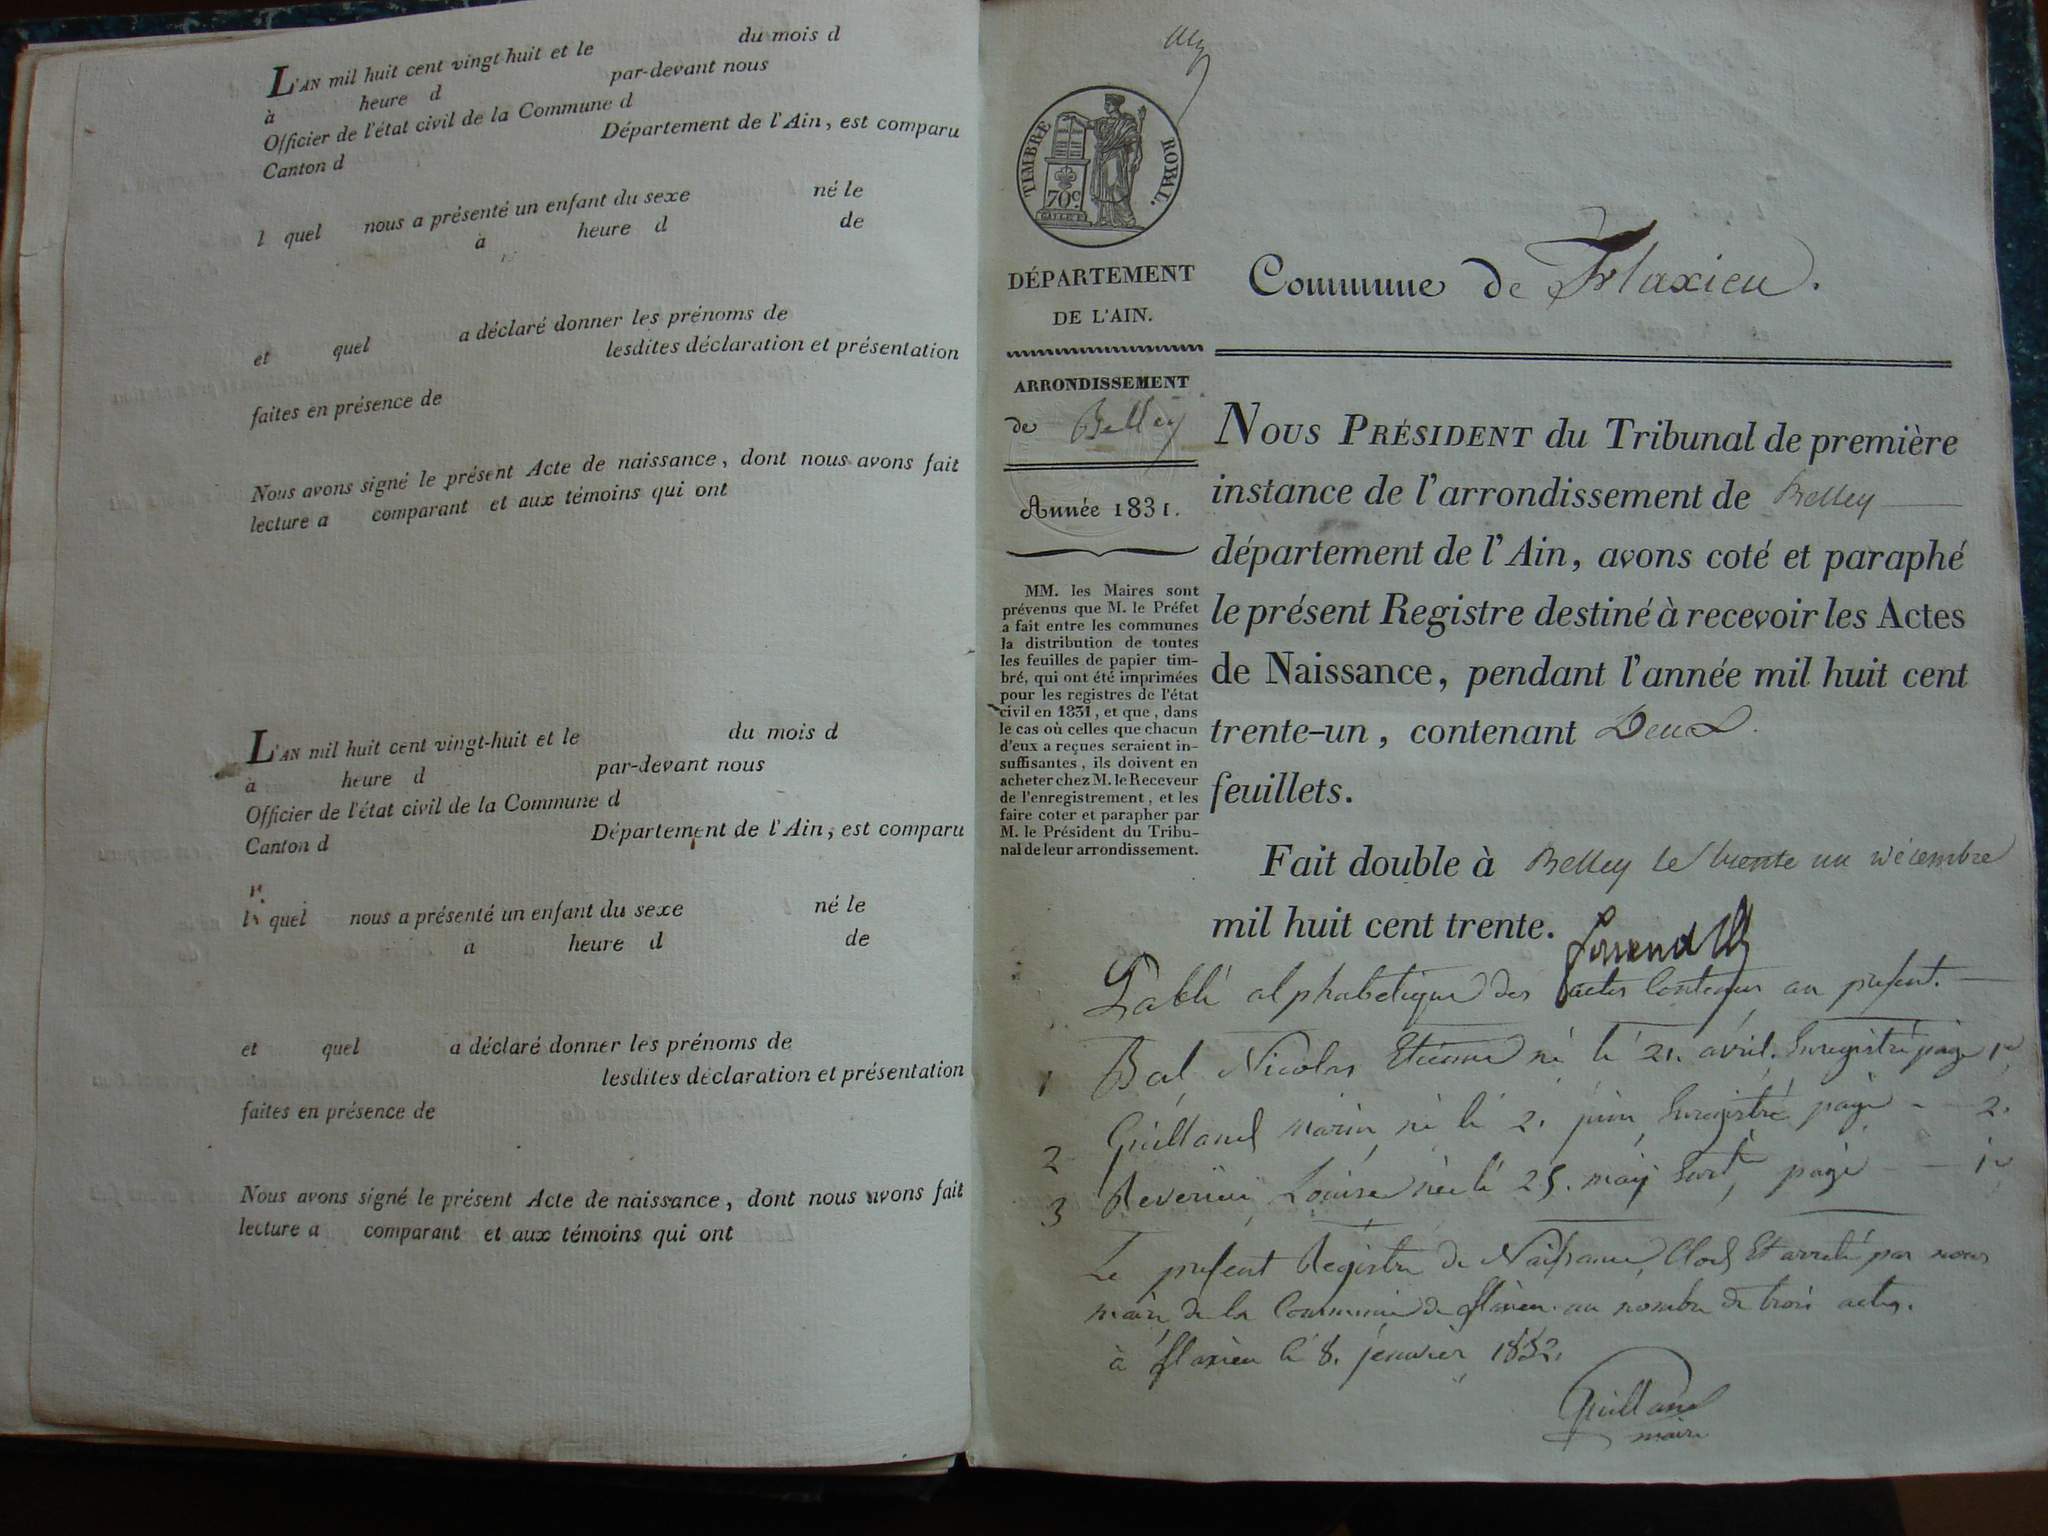 L'AN mil huit cent vingt-huit et le du mois d
à heure d par-devant nous
Officier de l'état civil de la Commune d
Canton d Département de l'Ain, est comparu
l quel nous a présenté un enfant du sexe né le
à heure d de
et quel a déclaré donner les prénoms de
lesdites déclaration et présentation
faites en présence de
Nous avons signé le présent Acte de naissance, dont nous avons fait
lecture a comparant et aux témoins qui ont
L'AN mil huit cent vingt-huit et le du mois d
à heure d par-devant nous
Officier de l'état civil de la Commune d
Canton d Département de l'Ain, est comparu
l quel nous a présenté un enfant du sexe né le
à heure d de
et quel a déclaré donner les prénoms de
lesdites déclaration et présentation
faites en présence de
Nous avons signé le présent Acte de naissance, dont nous avons fait
lecture a comparant et aux témoins qui ont
TIMBRE ROYAL.
70c
DÉPARTEMENT
DE L'AIN.
ARRONDISSEMENT
de Belley
Année 1831.
MM. les Maires sont
prévenus que M. le Préfet
a fait entre les communes
la distribution de toutes
les feuilles de papier tim-
bré, qui ont été imprimées
pour les registres de l'état
civil en 1831, et que, dans
le cas où celles que chacun
d'eux a reçues seraient in-
suffisantes, ils doivent en
acheter chez M. le Receveur
de l'enregistrement, et les
faire coter et parapher par
M. le Président du Tribu-
nal de leur arrondissement.
Commune de Flaxieu.
NOUS PRÉSIDENT du Tribunal de première
instance de l'arrondissement de Belley
département de l'Ain, avons coté et paraphé
le présent Registre destiné à recevoir les Actes
de Naissance, pendant l'année mil huit cent
trente-un, contenant Deux
feuillets.
Fait double à Belley le trente un décembre
mil huit cent trente.
Table alphabetique des actes Contenus au présent.
1 Bal Nicolas Etienne né le 21. avril. Enregistré page 1re
2 Guilland marin né le 2. juin Enregistré page - 2.
3 Louise née le 25. may page - - 1re
Le présent Registre de Naissance, Clos Et arreté par nous
maire de la Commune de flaxieu au nombre de trois actes.
à flaxieu le 8. janvier 1832.
Guilland
maire